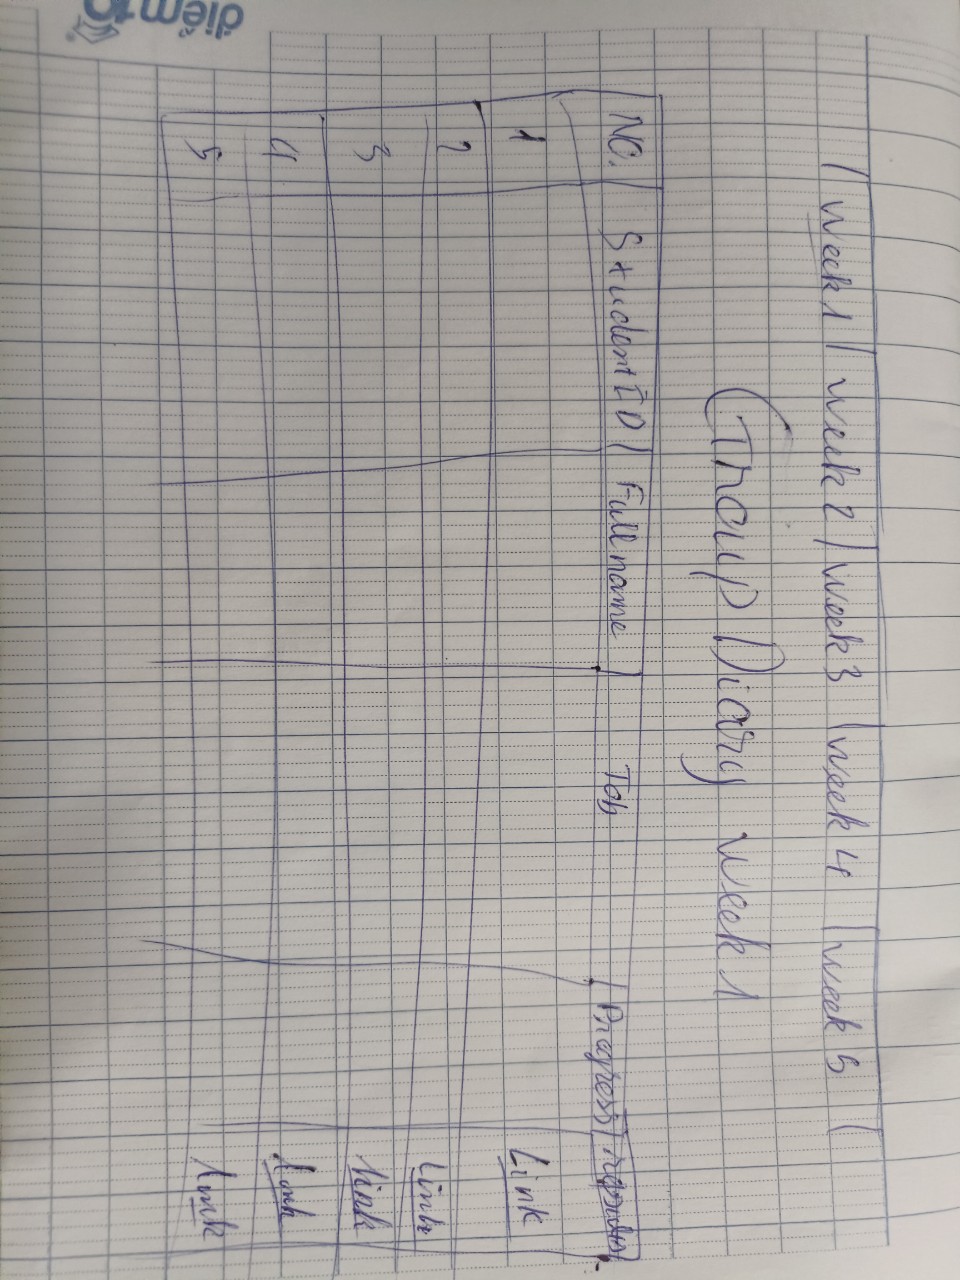 Week 1 | week 2 | week 3 | week 4 | week 5 |
Group Diary week 1
NO. | Student ID | Full name | Tob | Progress |
1 Link
2 Link
3 link
4 Link
5 Link
điểm10